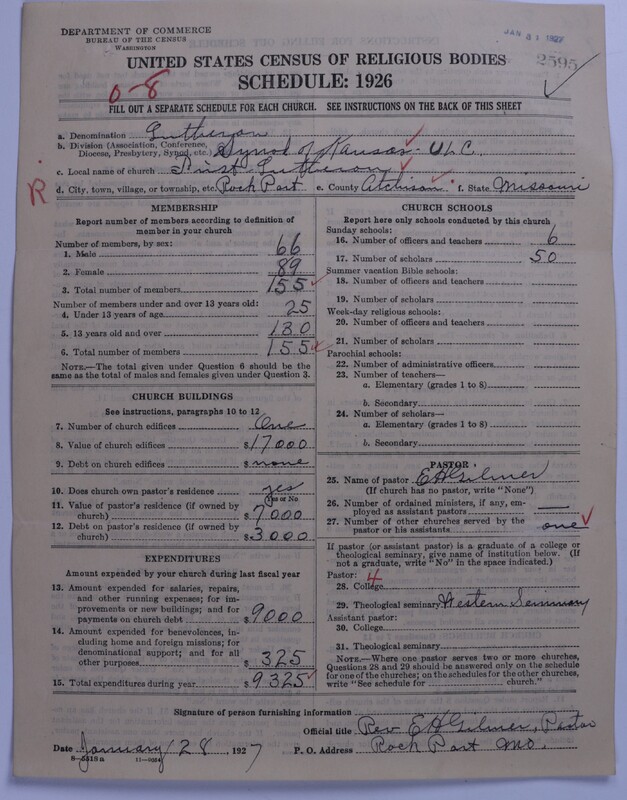 DEPARTMENT OF COMMERCE
BUREAU OF THE CENSUS
WASHINGTON
JAN 31 1927
2595
UNITED STATES CENSUS OF RELIGIOUS BODIES
SCHEDULE: 1926
0-8
FILL OUT A SEPARATE SCHEDULE FOR EACH CHURCH. SEE INSTRUCTIONS ON THE BACK OF THIS SHEET
a. Denomination Lutheran
b. Division (Association, Conference, Diocese, Presbytery, Synod, etc.) Synod of Kansas - U.L.C.
c. Local name of church First Lutheran
R. d. City, town, village, or township, etc. Rock Port e. County Atchison f. State Missouri
MEMBERSHIP
Report number of members according to definition of
member in your church
Number of members, by sex:
1. Male 66
2. Female 89
3. Total number of members 155
Number of members under and over 13 years old:
4. Under 13 years of age 25
5. 13 years old and over 130
6. Total number of members 155
NOTE.—The total given under Question 6 should be the
same as the total of males and females given under Question 3.
CHURCH BUILDINGS
See instructions, paragraphs 10 to 12
7. Number of church edifices One
8. Value of church edifices $17000
9. Debt on church edifices $none
10. Does church own pastor's residence yes
Yes or No
11. Value of pastor's residence (if owned by
church) $7000
12. Debt on pastor's residence (if owned by
church) $3000
EXPENDITURES
Amount expended by your church during last fiscal year
13. Amount expended for salaries, repairs,
and other running expenses; for im-
provements or new buildings; and for
payments on church debt $9000
14. Amount expended for benevolences, in-
cluding home and foreign missions; for
denominational support; and for all
other purposes $325
15. Total expenditures during year $9325
CHURCH SCHOOLS
Report here only schools conducted by this church
Sunday schools:
16. Number of officers and teachers 6
17. Number of scholars 50
Summer vacation Bible schools:
18. Number of officers and teachers
19. Number of scholars
Week-day religious schools:
20. Number of officers and teachers
21. Number of scholars
Parochial schools:
22. Number of administrative officers
23. Number of teachers—
a. Elementary (grades 1 to 8)
b. Secondary
24. Number of scholars—
a. Elementary (grades 1 to 8)
b. Secondary
PASTOR
25. Name of pastor E H Gilmer
(If church has no pastor, write "None")
26. Number of ordained ministers, if any, em-
ployed as assistant pastors
27. Number of other churches served by the
pastor or his assistants one
If pastor (or assistant pastor) is a graduate of a college or
theological seminary, give name of institution below. (If
not a graduate, write "No" in the space indicated.)
Pastor: 4
28. College
29. Theological seminary Western Seminary
Assistant pastor:
30. College
31. Theological seminary
NOTE.—Where one pastor serves two or more churches,
Questions 28 and 29 should be answered only on the schedule
for one of the churches; on the schedules for the other churches,
write "See schedule for church."
Signature of person furnishing information
Official title Rev E H Gilmer, Pastor
Date January 28, 1927 P. O. Address Rock Port Mo.
8-5518a